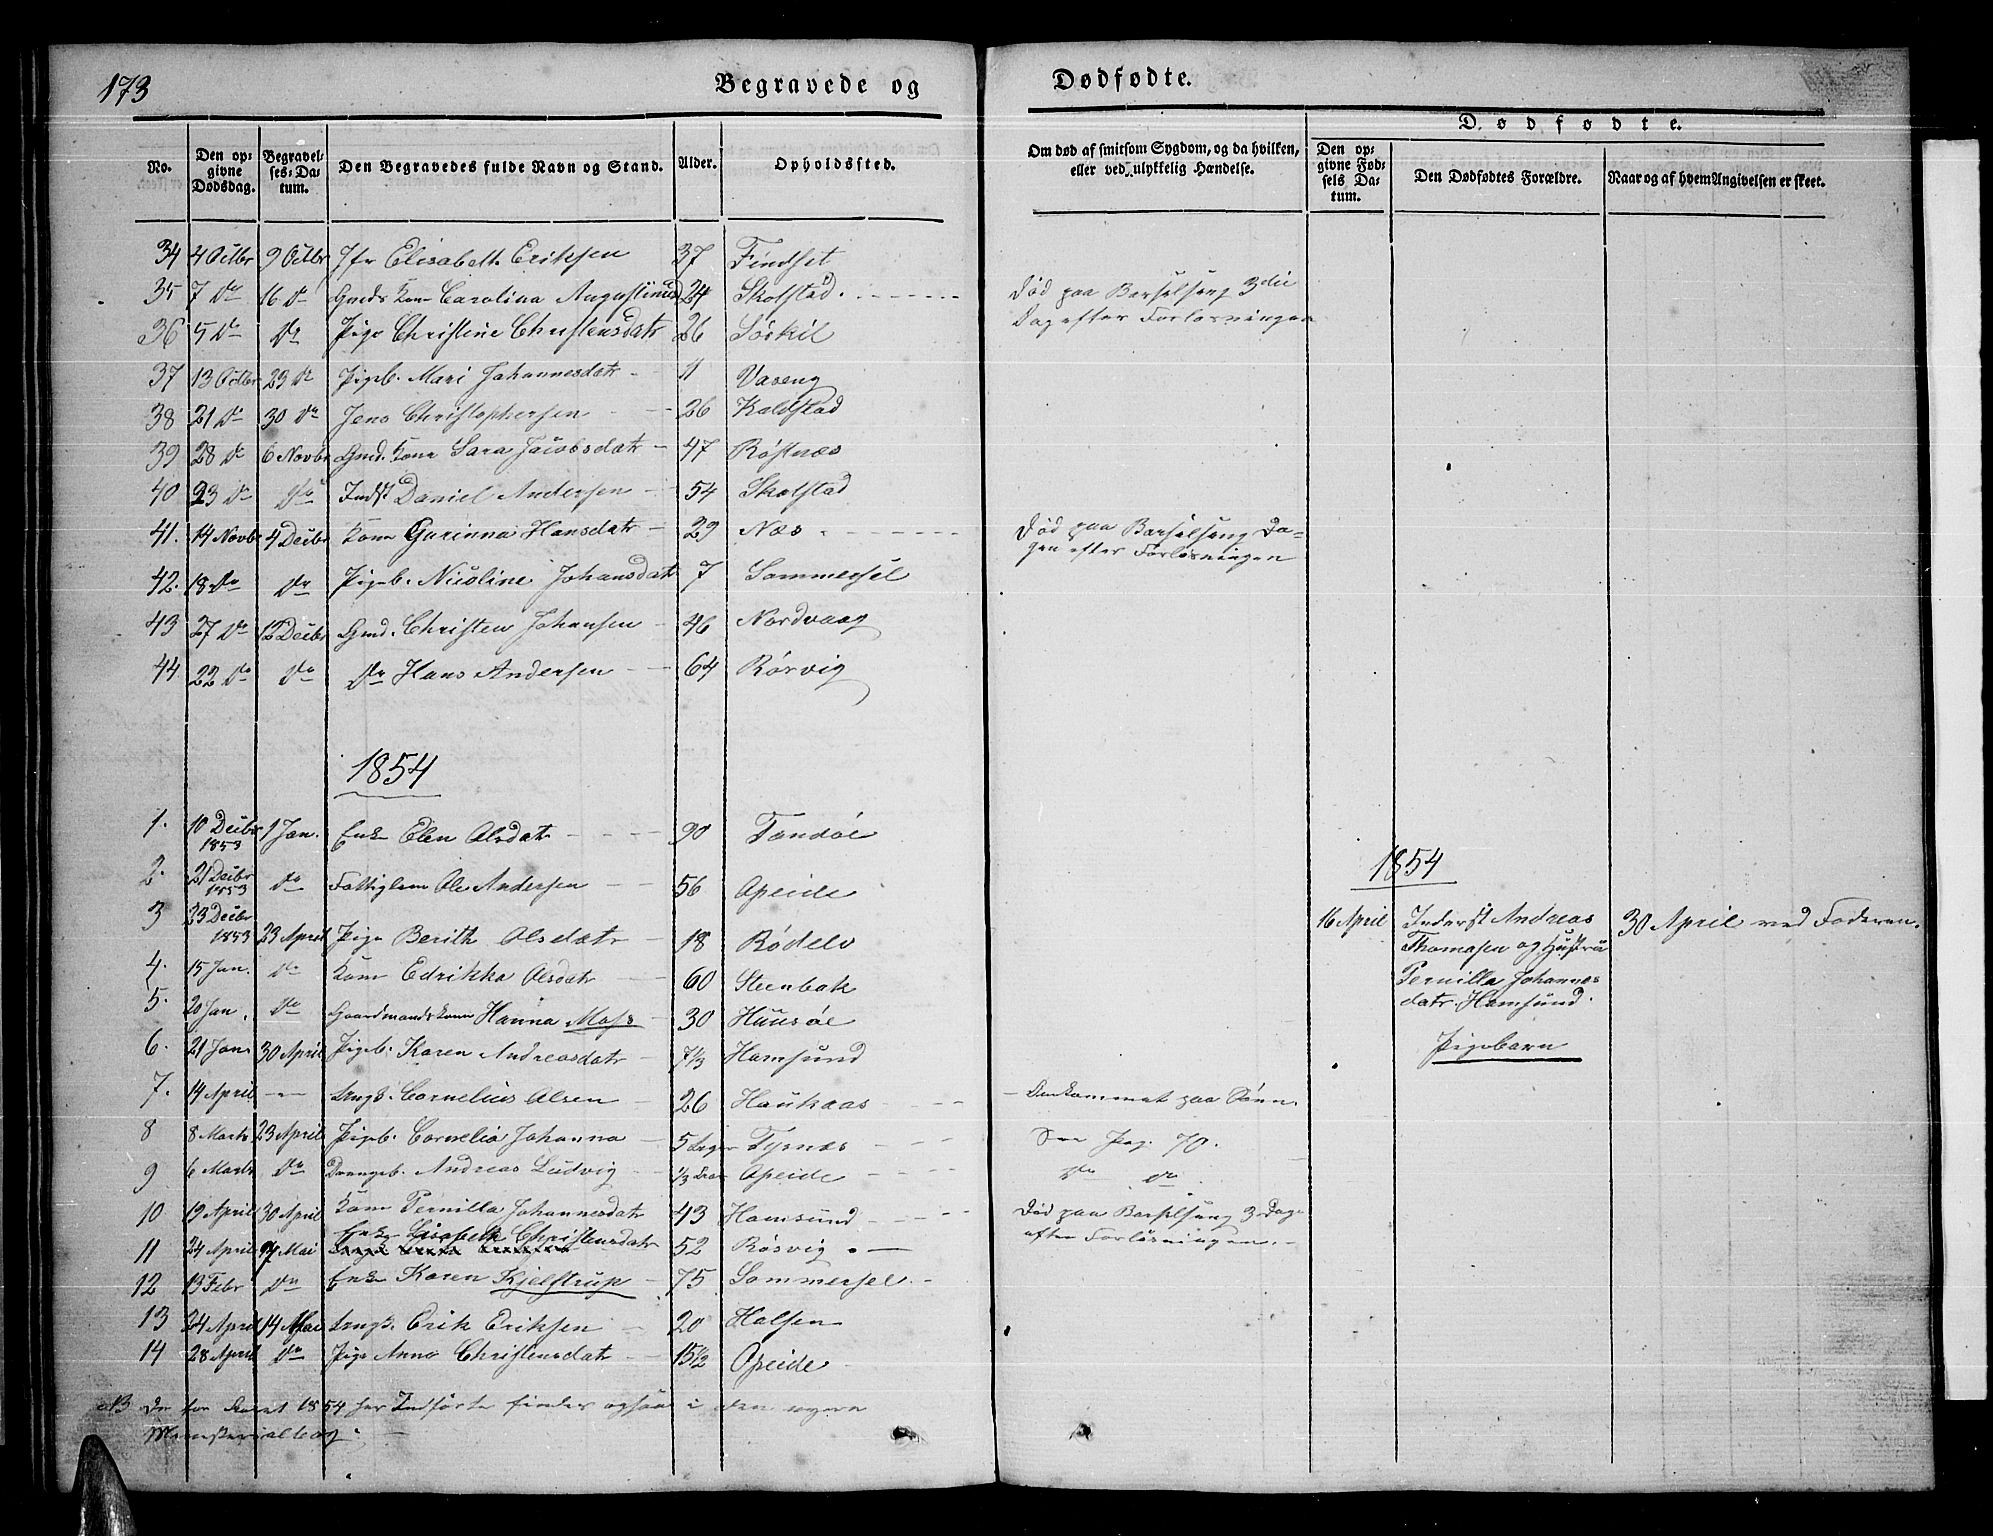 173
Begravede og Dødfødte.
Dødfødte.
No. Den opgivne Dødsdag. Begravelses-Datum. Den Begravedes fulde Navn og Stand. Alder. Opholdssted. Om død af smitsom Sygdom, og da hvilken, eller ved ulykkelig Hændelse. Den opgivne Fødsels Datum. Den Dødfødtes Forældre. Naar og af hvem Angivelsen er skeet.
34 4 Octbr 9 Octbr Jfr Elisabeth Eriksen 37 Findset
35 7 Do 16 Do Gmds Kone Carolina Augustinusd 24 Skotstad Død paa Barselseng 3die
Dag efter Forløsningen
36 5 Do Do Pige Christine Christensdatr 26 Søskil
37 13 Octbr 23 Do Pigeb. Mari Johannesdatr 11 Vaseng
38 21 Do 30 Do Jens Christophersen 26 Kaldstad
39 28 Do 6 Novbr Gmd. Kone Sara Jacobsdatr 47 Røstnæs
40 23 Do Do Indst Daniel Andersen 54 Skotstad
41. 14 Novbr 4 Decbr Kone Gurinna Hansdatr 29 Næs Død paa Barselseng Da-
gen efter Forløsningen
42. 18 Do Do Pigeb. Nicoline Johansdatr 7 Sommersel
43 27 Do 12 Decbr Gmd. Christen Johansen 46 Nordvaag
44 22 Do Do Do Hans Andersen 64 Rørvig
1854
1. 10 Decbr 1853 1 Jan. Enke Elen Olsdatr 90 Tandøe
2. 21 Decbr 1853 Do Fattiglem Ole Andersen 56 Opeide
3 23 Decbr 1853 23 April Pige Berith Olsdatr 18 Rødelv
4. 15 Jan. Do Kone Edrikka Olsdatr 60 Steenbak
5. 20 Jan. Do Gaardmandskone Hanna Moss 30 Huusøe
6. 21 Jan. 30 April Pigeb. Karen Andreasdatr 7 1/3 Hamsund
7. 14 April Ungk. Cornelius Olsen 26 Haukaas Omkommet paa Søen.
8 8 Marts 23 April Pigeb. Cornelia Johanna 5 Dage Tysnæs See Pag. 70.
9 6 Marts Do Drengeb. Andreas Ludvig 1/3 Opeide Do Do
10 19 April 30 April Kone Pernilla Johannesdatr 43 Hamsund Død paa Barselseng 3 Dage
efter Forløsningen.
11 24 April 7 Mai Enke Lisabeth Christensdatr 52 Røsvig
12 13 Febr Do Enke Karen Kjelstrup 75 Sommersel
13 24 April 14 Mai Ungk. Erik Eriksen 20 Holsen
14 28 April Do Pige Anne Christensdatr 15 1/2 Opeide
1854
16 April Inderst Andreas 30 April ved Faderen.
Thomasen og Hustru
Pernilla Johannes
datr. Hamsund.
Pigebarn
NB De for Aaret 1854 her Indførte findes ogsaa i den nyere
Ministerialbog.